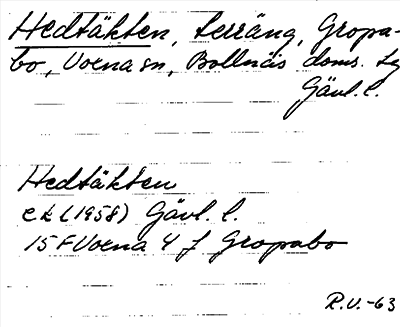 Hedtäkten, terräng, Gropa-
bo, Voxna sn, Bollnäs doms. tg
Gävl. l.
Hedtäkten
ek (1958) Gävl. l.
15 F Voxna 4 f Gropabo
R.V.-63